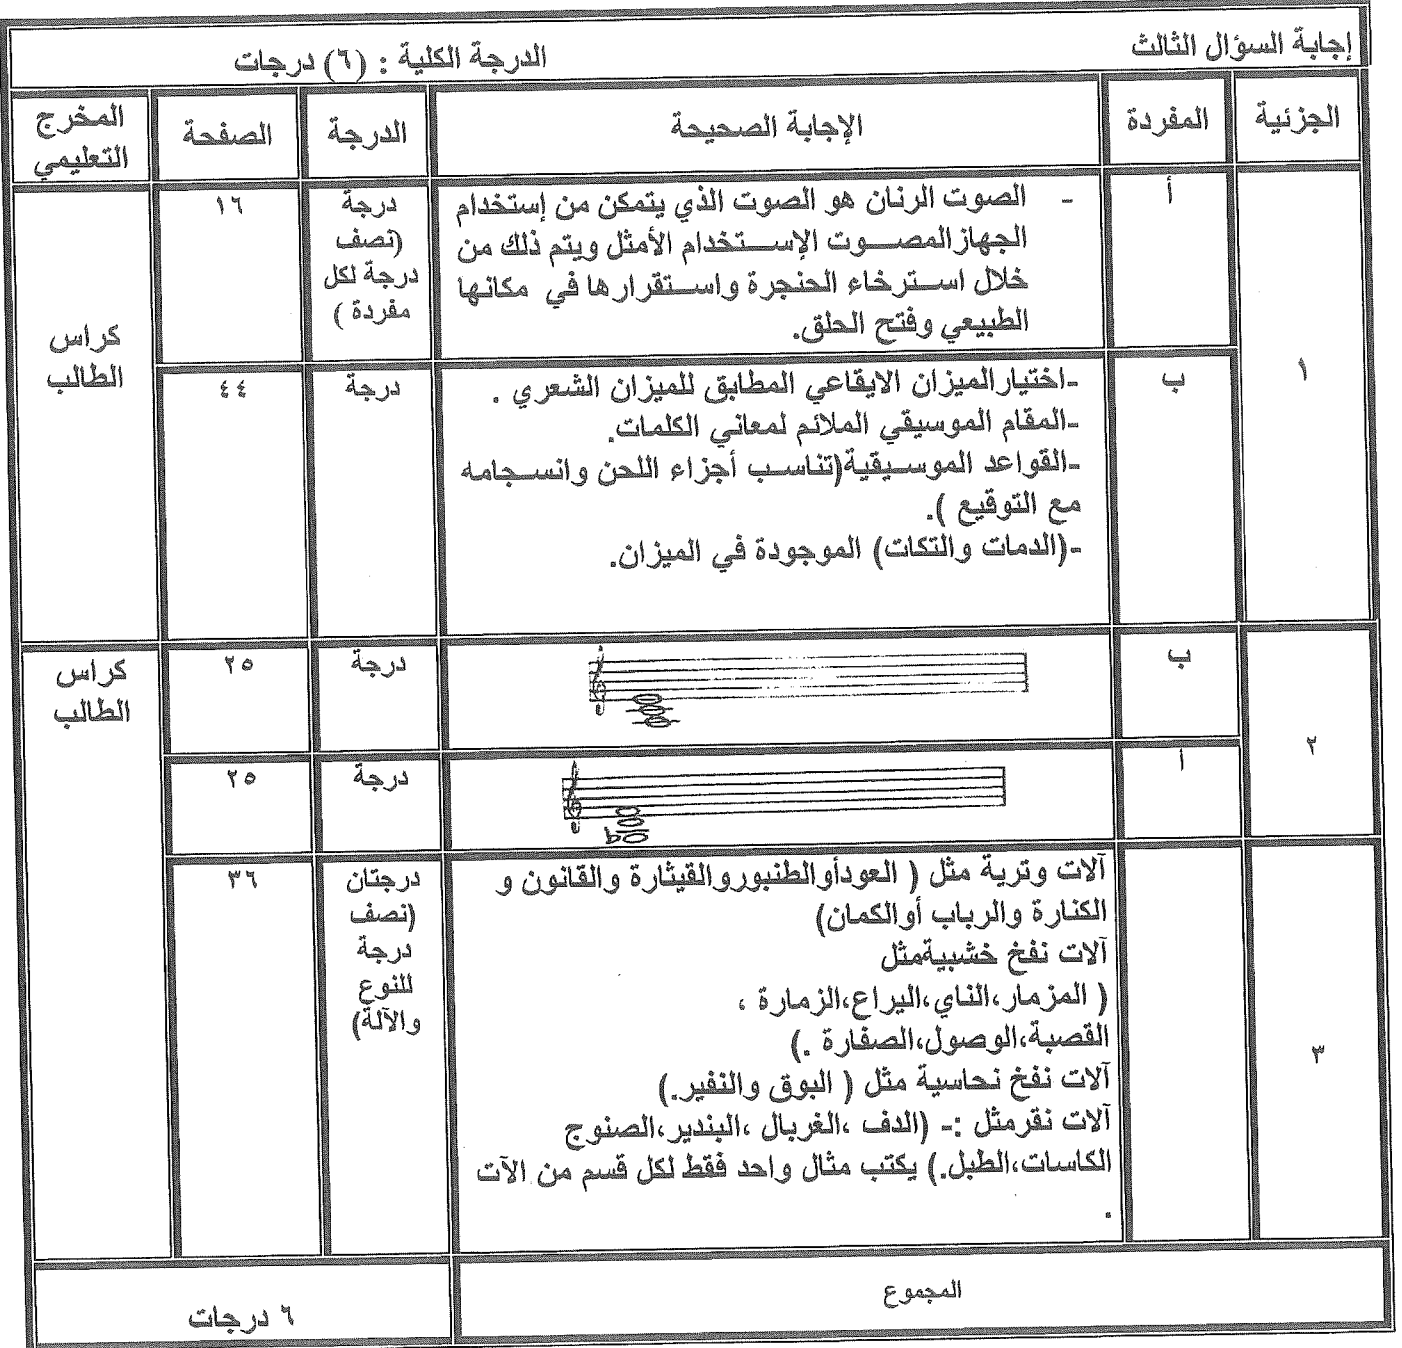 إجابة السؤال الثالث الدرجة الكلية : (٦) درجات
الجزئية المفردة الإجابة الصحيحة الدرجة الصفحة المخرج التعليمي
١
أ
- الصوت الرنان هو الصوت الذي يتمكن من إستخدام
الجهاز المصوت الإستخدام الأمثل ويتم ذلك من
خلال استرخاء الحنجرة واستقرارها في مكانها
الطبيعي وفتح الحلق.
درجة
(نصف
درجة لكل
مفردة )
١٦
كراس
الطالب
ب
-اختيارالميزان الايقاعي المطابق للميزان الشعري .
-المقام الموسيقي الملائم لمعاني الكلمات.
-القواعد الموسيقية(تناسب أجزاء اللحن وانسجامه
مع التوقيع ).
-(الدمات والتكات) الموجودة في الميزان.
درجة
٤٤
٢
ب
درجة
٢٥
كراس
الطالب
أ
درجة
٢٥
٣
آلات وترية مثل ( العودأوالطنبوروالقيثارة والقانون و
الكنارة والرباب أوالكمان)
آلات نفخ خشبيةمثل
( المزمار،الناي،اليراع،الزمارة ،
القصبة،الوصول،الصفارة .)
آلات نفخ نحاسية مثل ( البوق والنفير.)
آلات نقرمثل :- (الدف ،الغربال ،البندير،الصنوج
الكاسات،الطبل.) يكتب مثال واحد فقط لكل قسم من الآت
.
درجتان
(نصف
درجة
للنوع
والآلة)
٣٦
المجموع
٦ درجات